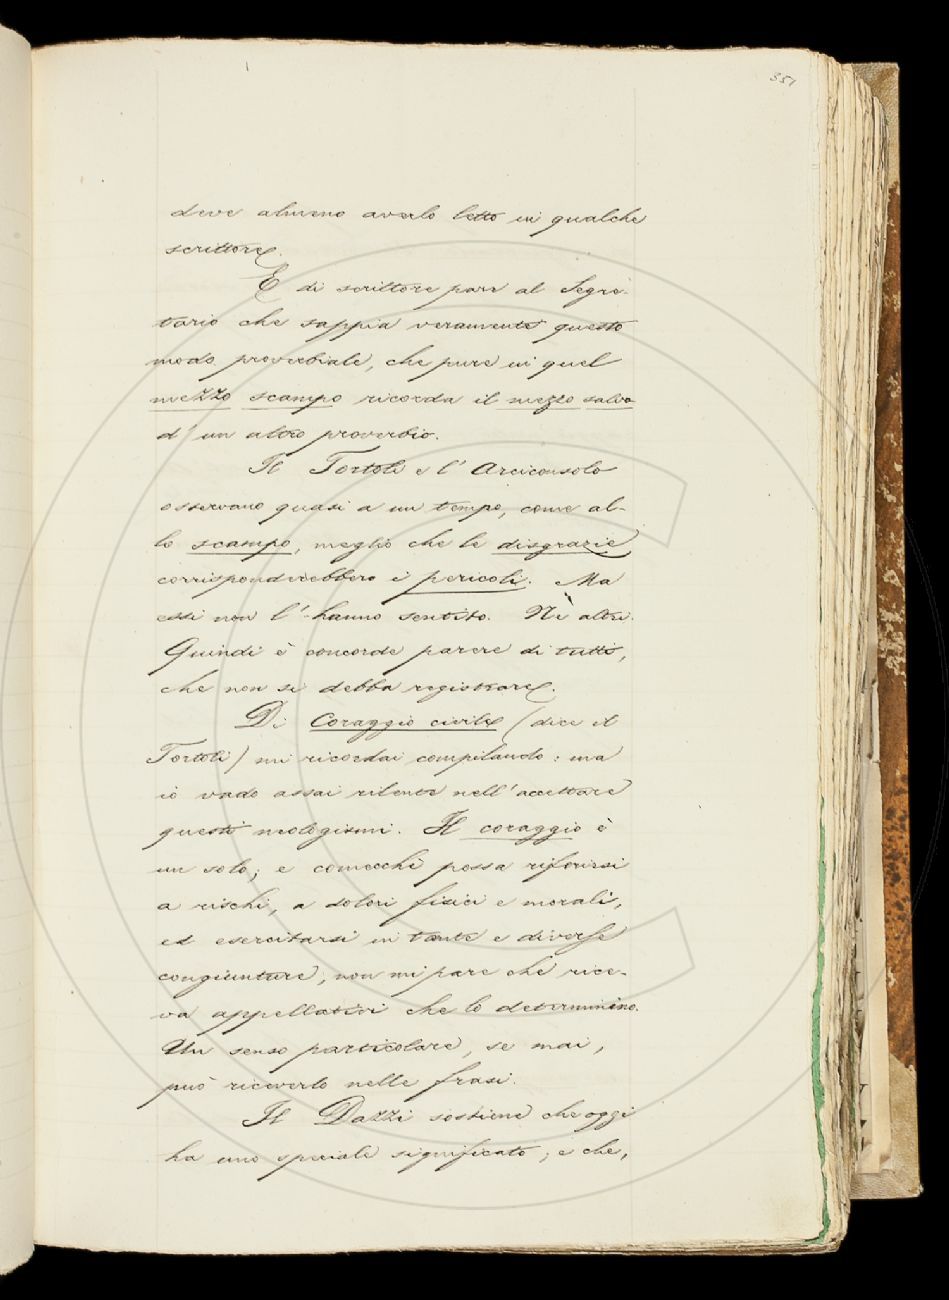 351
deve almeno averlo letto in qualche
scrittore.
E di scrittore pare al Segre-
tario che sappia veramente questo
modo proverbiale, che pure in quel
mezzo scampo ricorda il mezzo salvo
d'un altro proverbio.
Il Tortoli e l'Arciconsolo
osservano quasi a un tempo, come al-
lo scampo, meglio che le disgrazie
corrisponderebbero i pericoli. Ma
essi non l'hanno sentito. Nè altri.
Quindi è concorde parere di tutti,
che non si debba registrare.
Di Coraggio civile (dice il
Tortoli) mi ricordai compilando: ma
io vado assai rilente nell'accettare
questi neologismi. Il coraggio è
un solo; e comecchè possa riferirsi
a rischi, a dolori fisici e morali,
ed esercitarsi in tante e diverse
congiunture, non mi pare che rice-
va appellativi che lo determinino.
Un senso particolare, se mai,
può riceverlo nelle frasi.
Il Dazzi sostiene che oggi
ha uno speciale significato; e che,